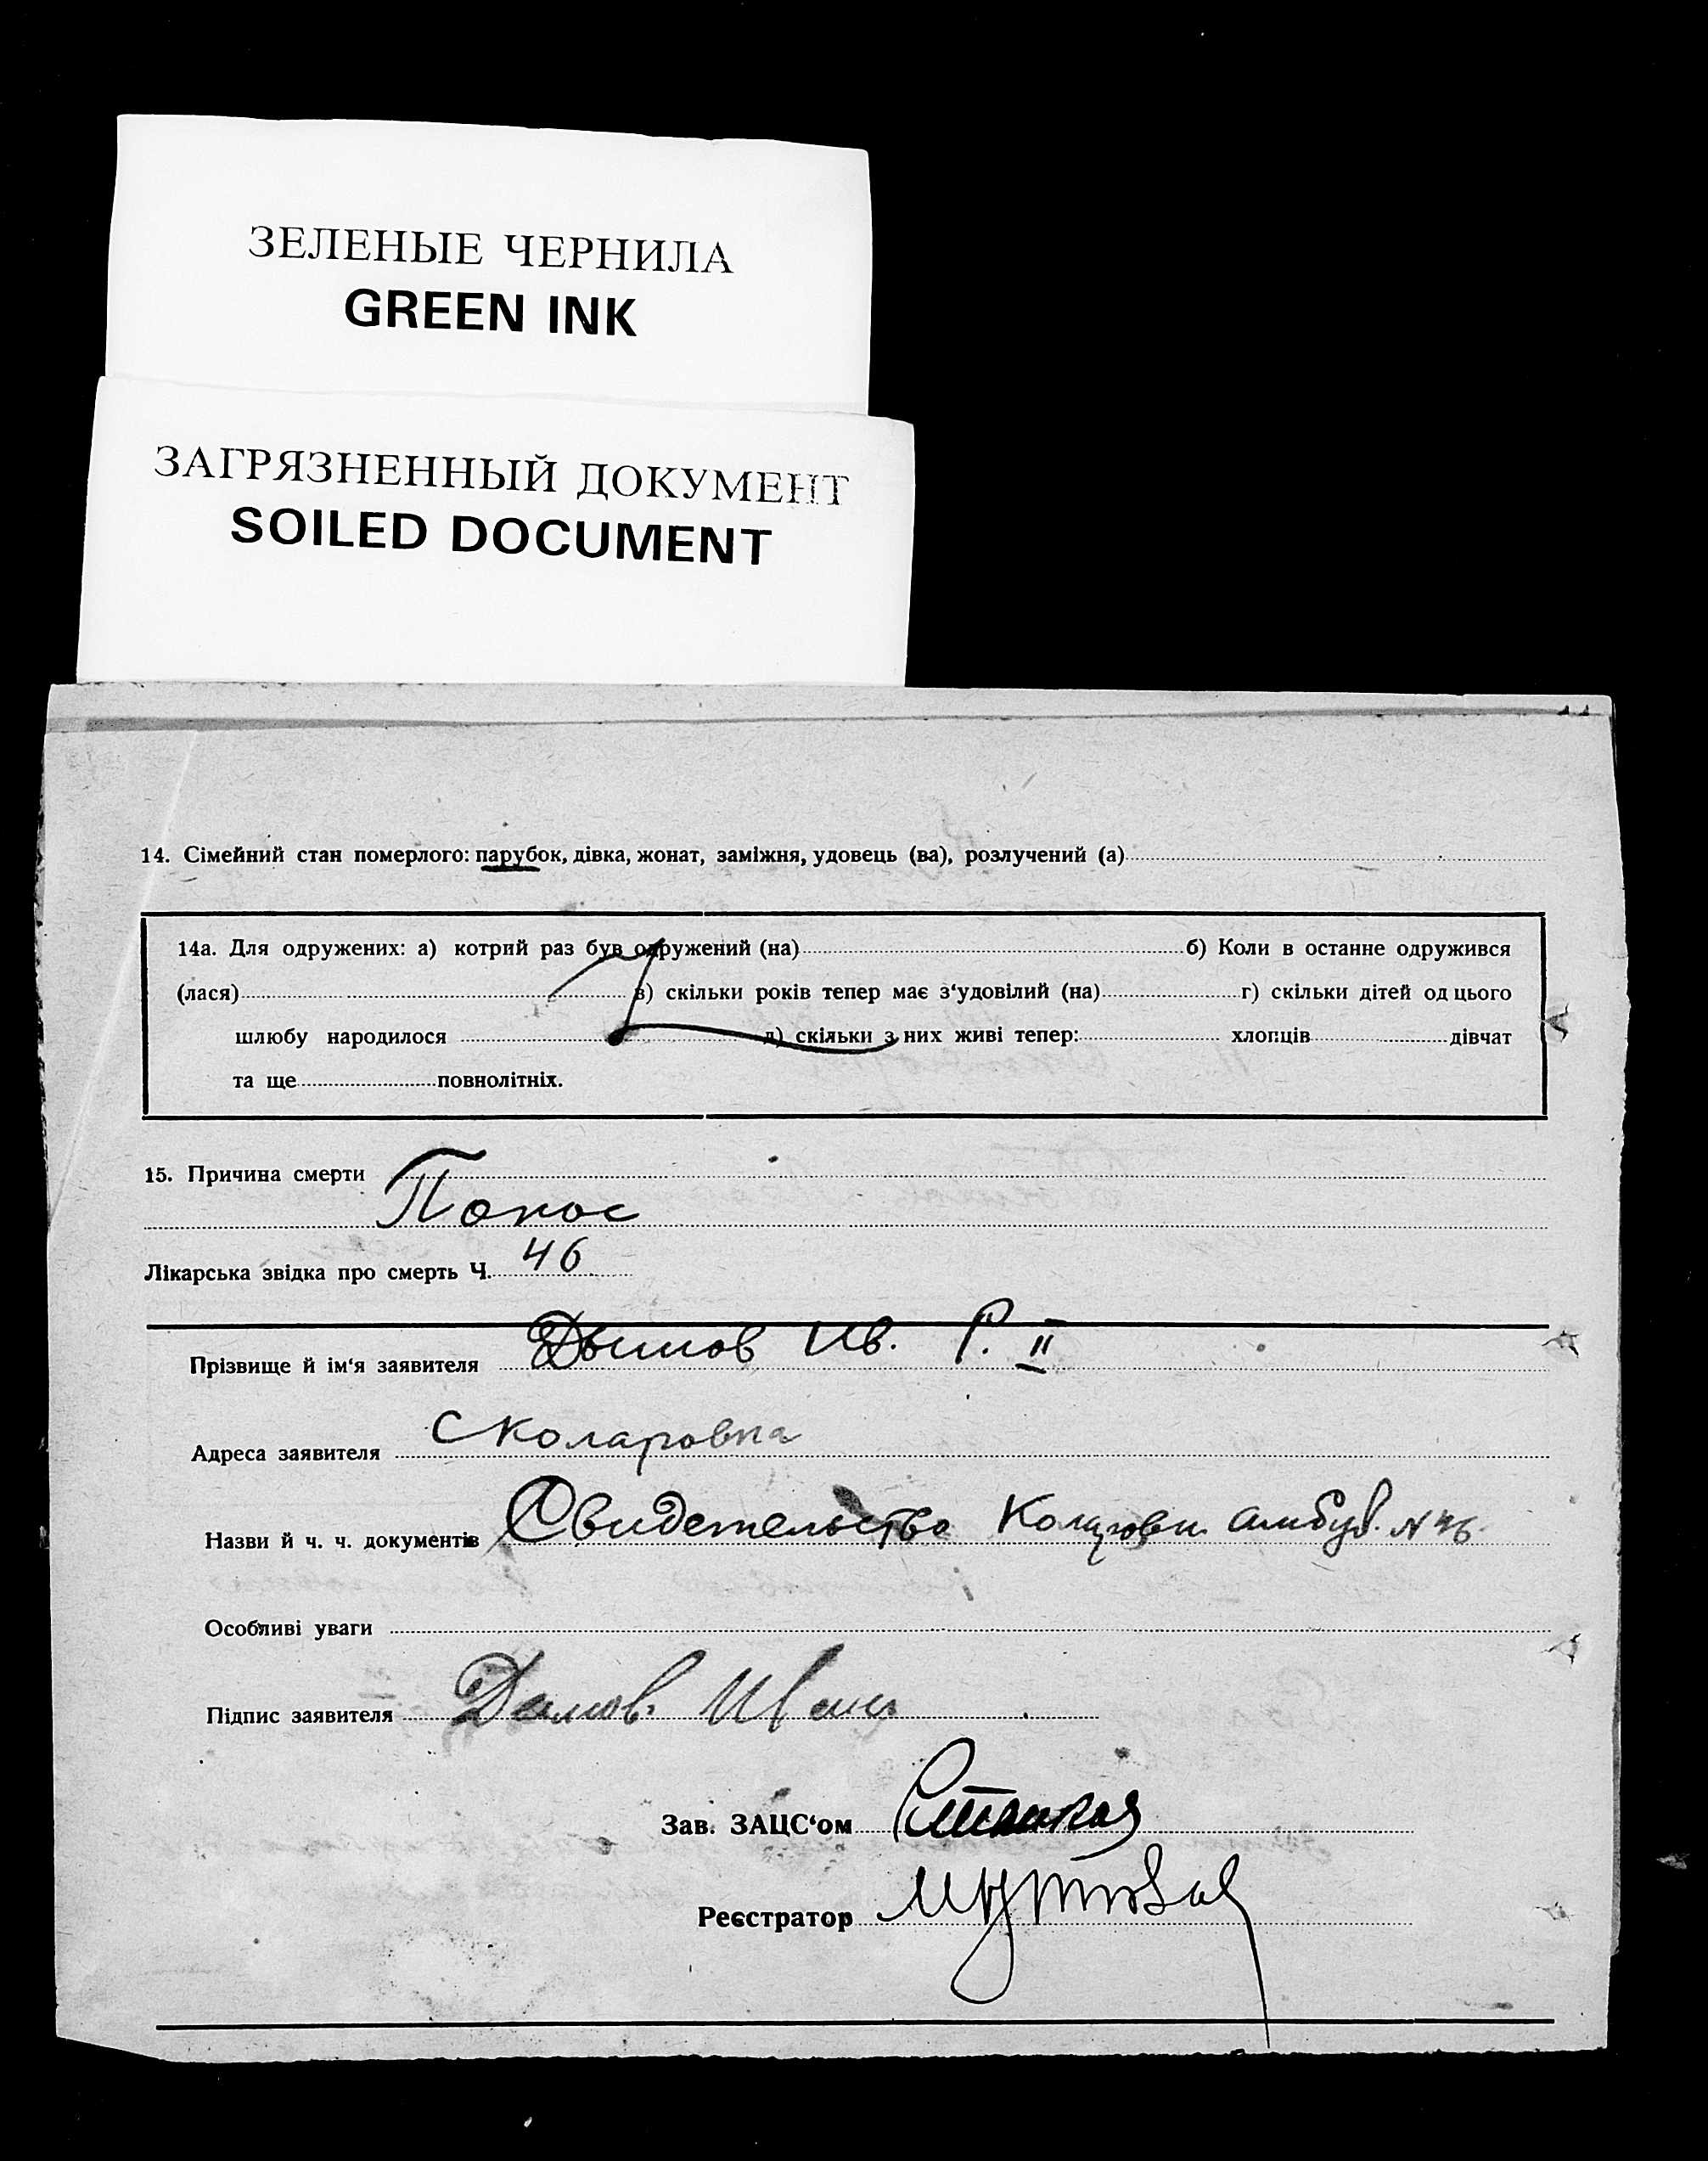 ЗЕЛЕНЫЕ ЧЕРНИЛА
GREEN INK
ЗАГРЯЗНЕННЫЙ ДОКУМЕНТ
SOILED DOCUMENT
14. Сімейний стан померлого: парубок, дівка, жонат, заміжня, удовець (ва), розлучений (а)
14а. Для одружених: а) котрий раз був одружений (на) б) Коли в останне одружився
(лася) в) скільки років тепер має з‘удовілий (на) г) скільки дітей од цього
шлюбу народилося д) скільки з них живі тепер: хлопців дівчат
та ще повнолітніх.
15. Причина смерти
Понос
Лікарська звідка про смерть Ч. 46
Прізвище й ім‘я заявителя Дымов Ив. Р. II
Адреса заявителя С Коларовка
Назви й ч. ч. документів Свидетельство Коларовк. амбул. N 46
Особливі уваги
Підпис заявителя Димов Иван
Зав. ЗАЦС‘ом
Реєстратор